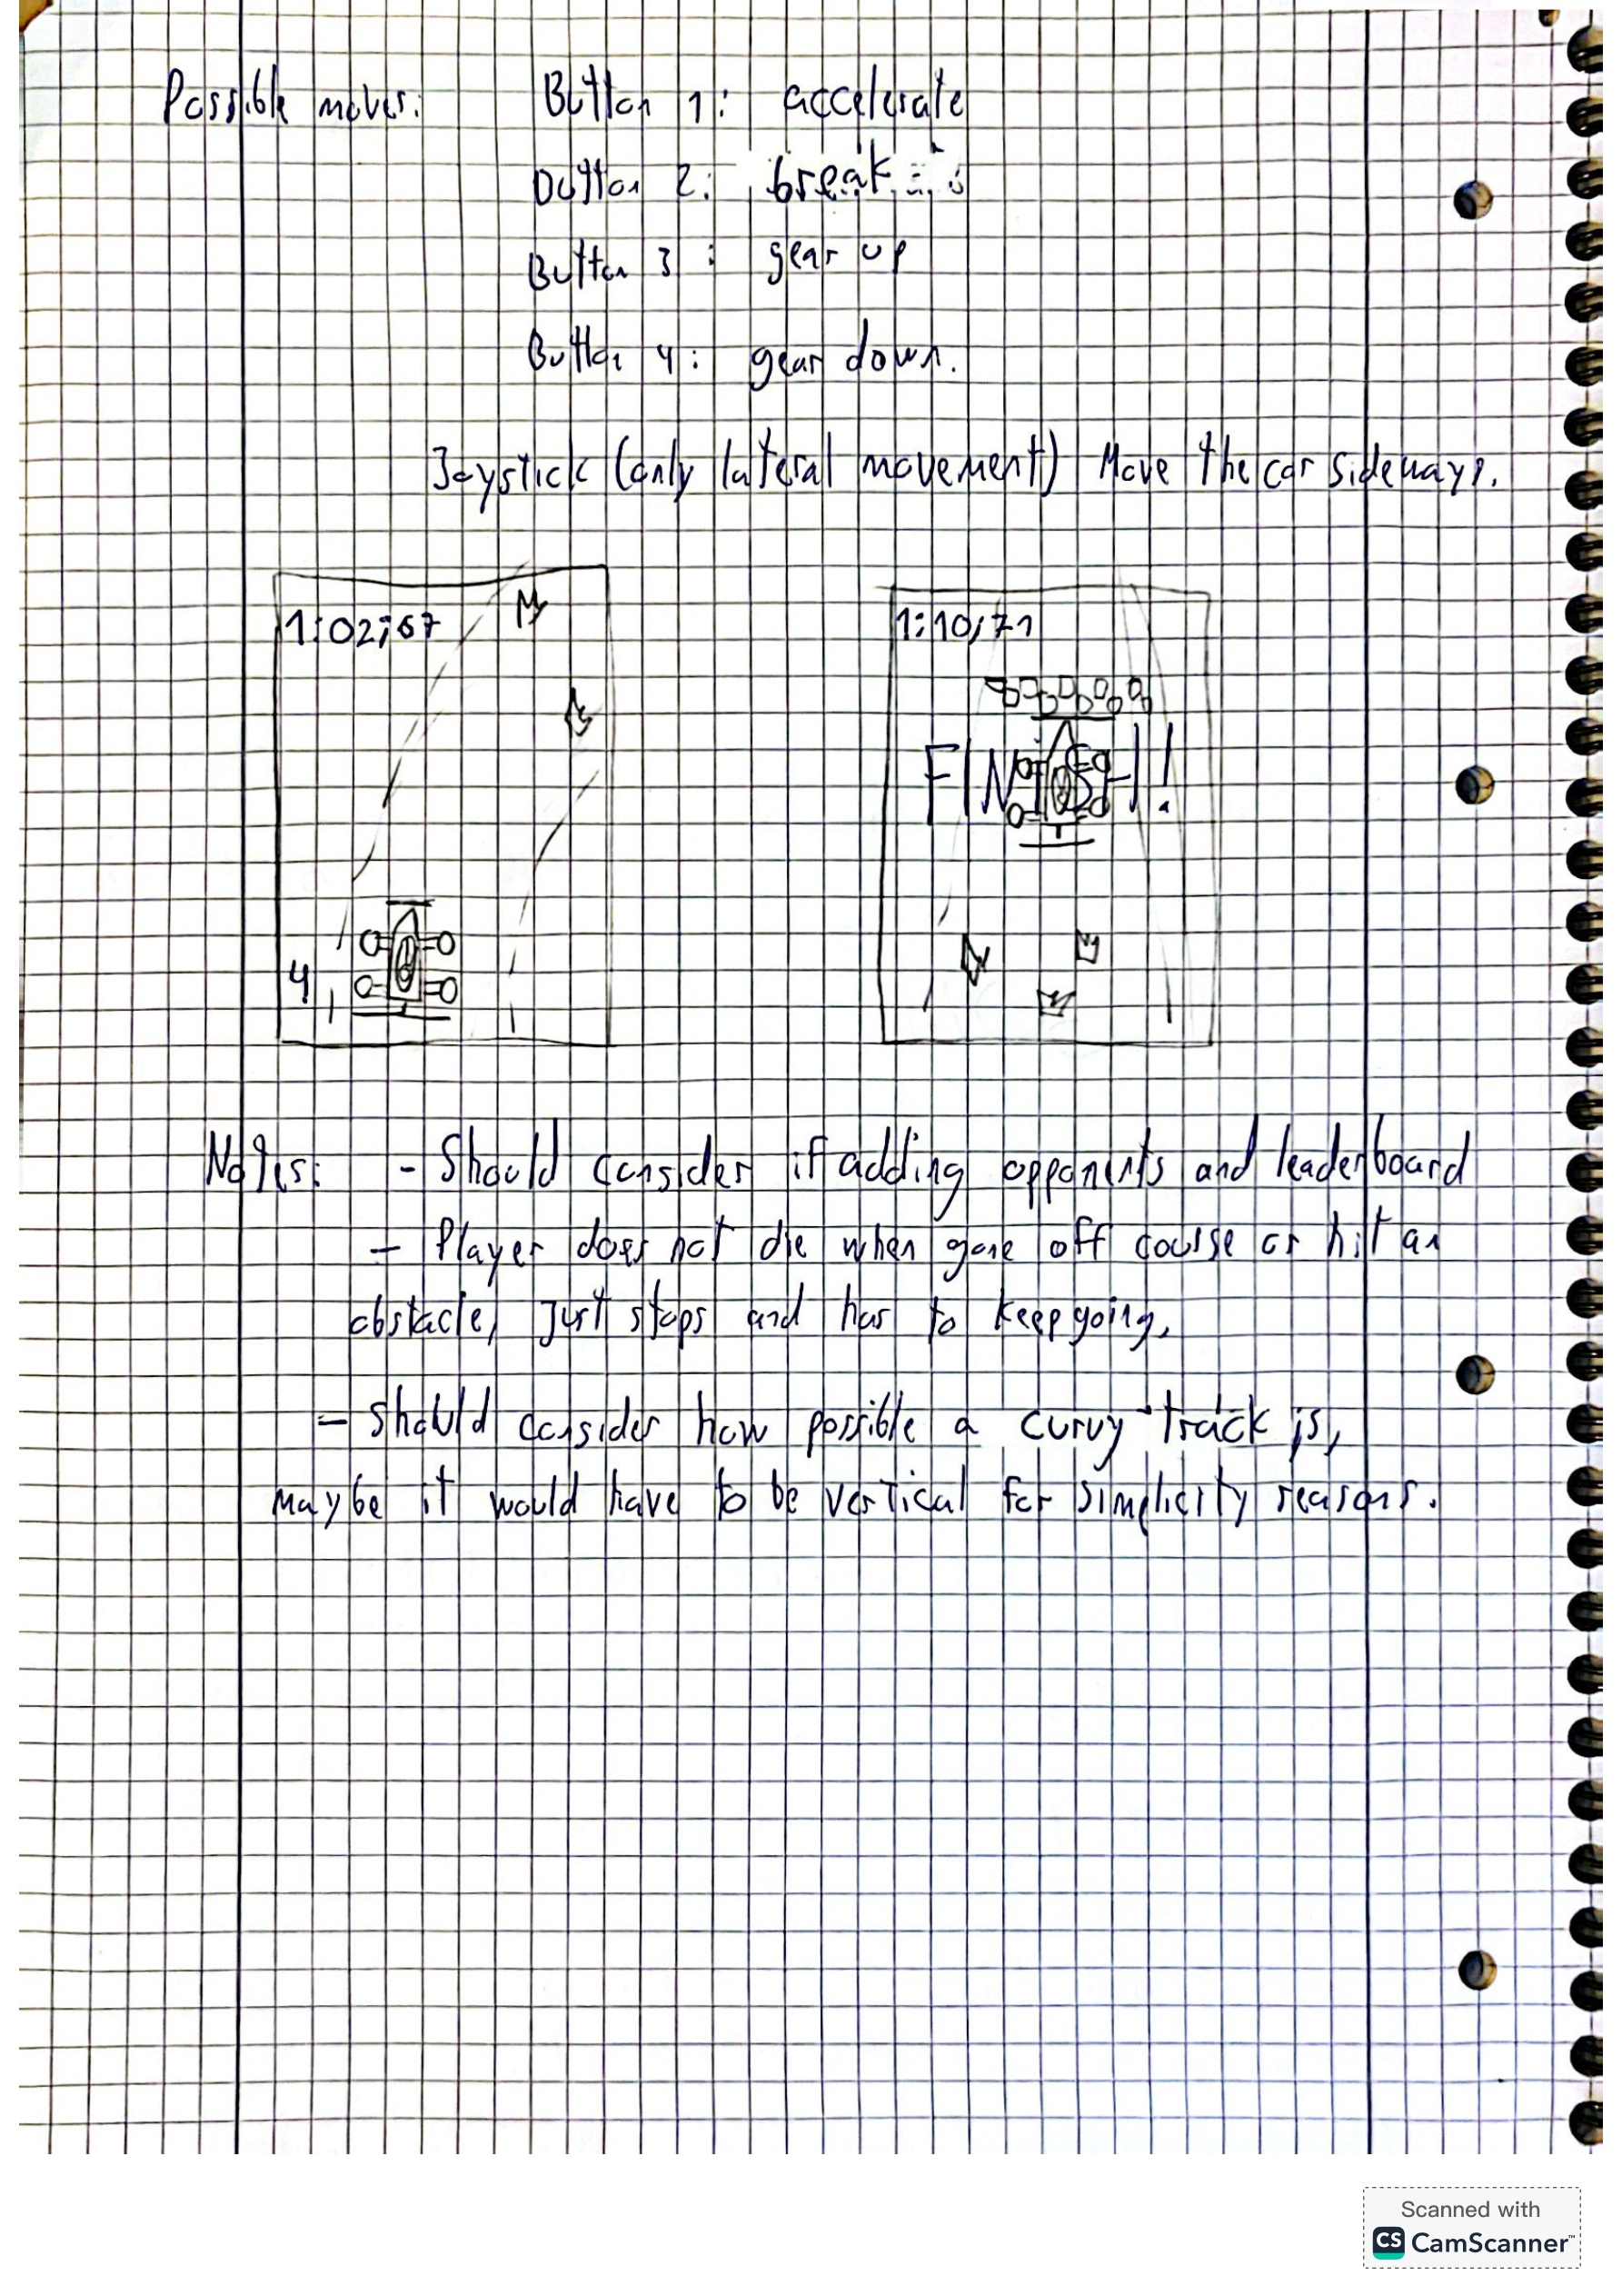 Possible moves: Button 1: accelerate
Button 2: break
Button 3: gear up
Button 4: gear down.
Joystick (only lateral movement) Move the car sideways.
1:02;67
1:10;71
FINISH!
4
Notes: - Should consider if adding opponents and leaderboard
- Player does not die when gone off course or hit an
obstacle, just stops and has to keep going.
- Should consider how possible a curvy track is,
maybe it would have to be vertical for simplicity reasons.
Scanned with
CS CamScanner™